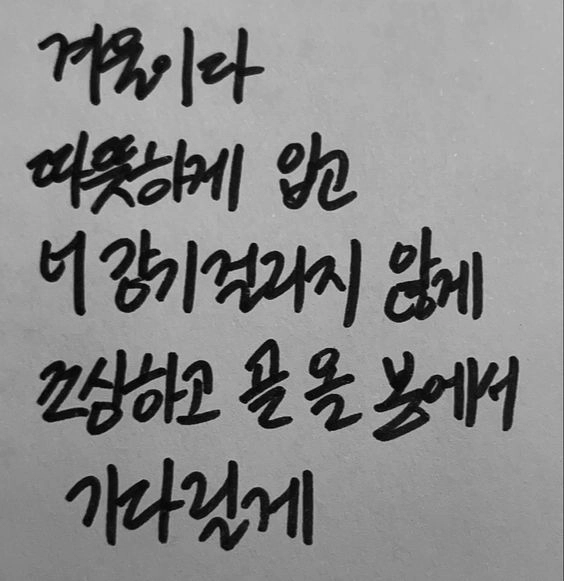 겨울이다
따뜻하게 입고
너 감기걸리지 않게
조심하고 꼴 올 봄에서
기다릴게